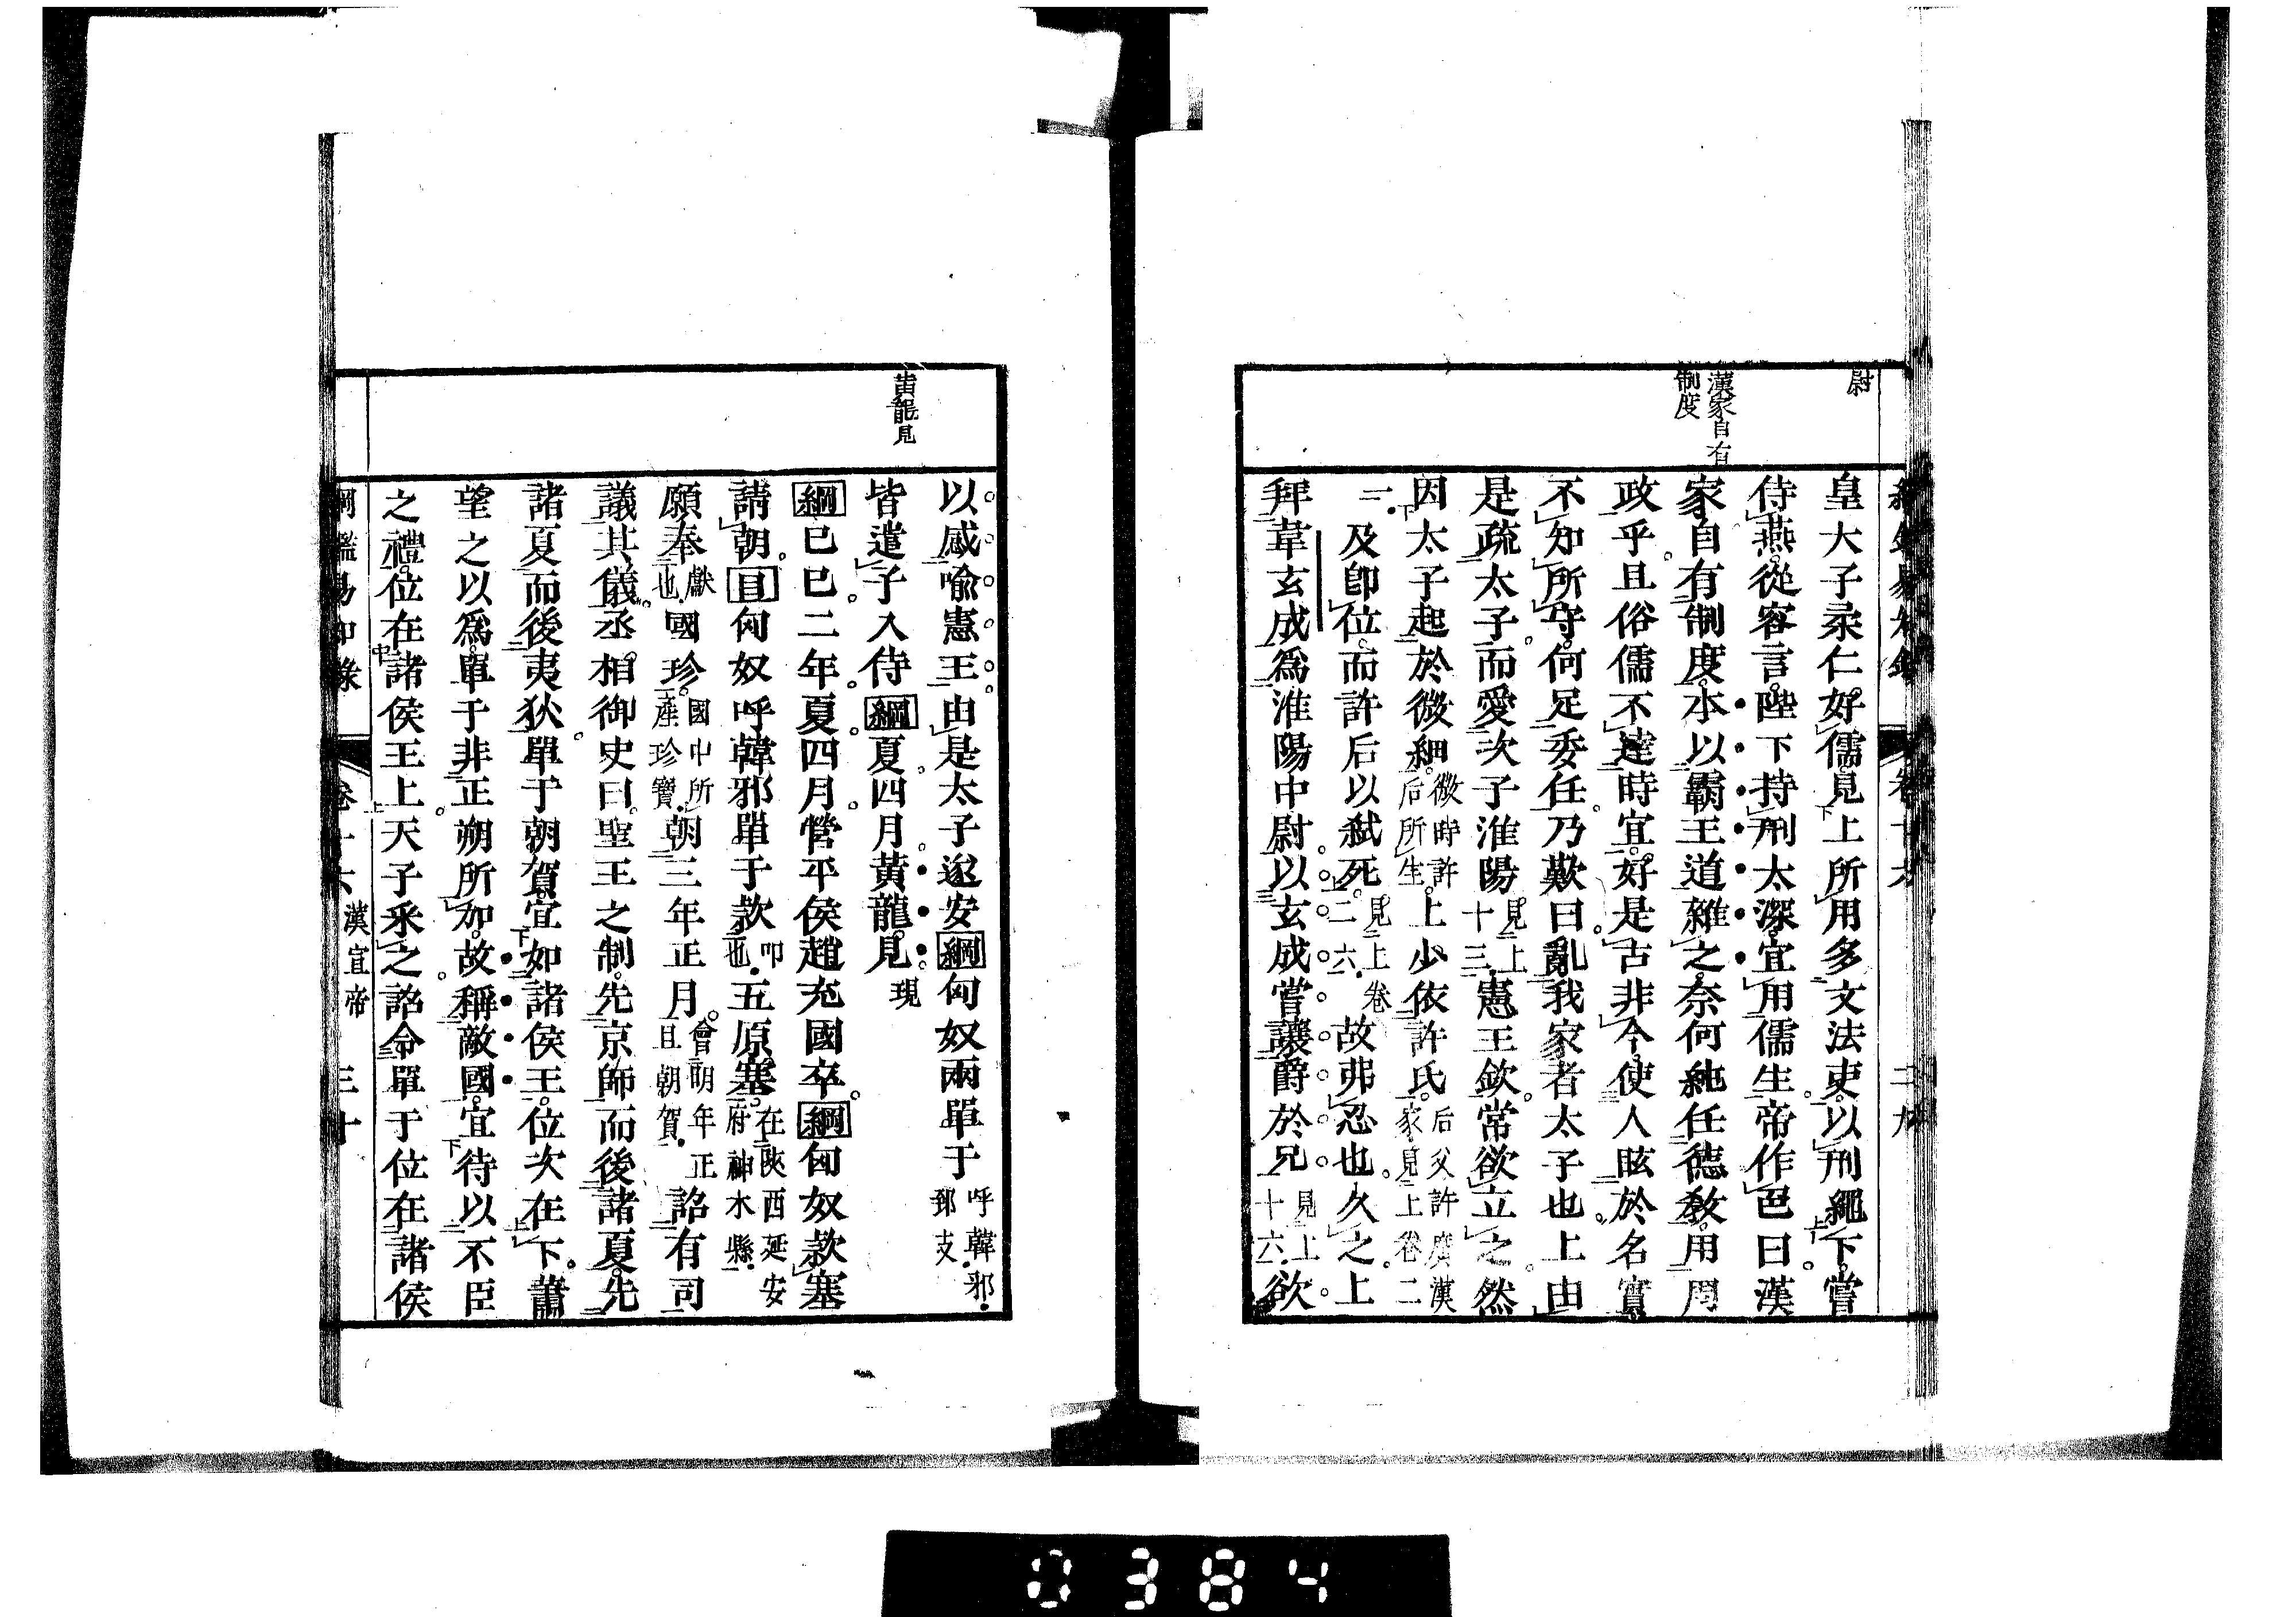 尉
漢家自有
制度
皇大子柔仁好儒見上所用多文法吏以刑繩下嘗
侍燕從容言陛下持刑太深宜用儒生帝作色曰漢
家自有制度本以霸王道雜之奈何純任德教用周
政乎且俗儒不達時宜好是古非今使人眩於名實
不知所守何足委任乃歎曰亂我家者太子也上由
是疏太子而愛次子淮陽見上十三憲王欽常欲立之然
因太子起於微細微時許后所生上少依許氏后父許廣漢家見上卷二
一及卽位而許后以弑死見上卷二六故弗忍也久之上
拜韋玄成爲淮陽中尉以玄成嘗讓爵於兄見上十六欲
黃龍見
以感喻憲王由是太子遂安綱匈奴兩單于呼韓邪郅支
皆遣子入侍綱夏四月黃龍見現
綱已巳二年夏四月營平侯趙充國卒綱匈奴款塞
請朝目匈奴呼韓邪單于款叩也五原塞在陝西延安府神木縣
願奉獻也國珍國中所產珍寶朝三年正月會明年正旦朝賀詔有司
議其儀丞相御史曰聖王之制先京師而後諸夏先
諸夏而後夷狄單于朝賀宜如諸侯王位次在下蕭
望之以爲單于非正朔所加故稱敵國宜待以不臣
之禮位在諸侯王上天子采之詔令單于位在諸侯
綱鑑易知錄 卷十六 漢宣帝 三十
0384